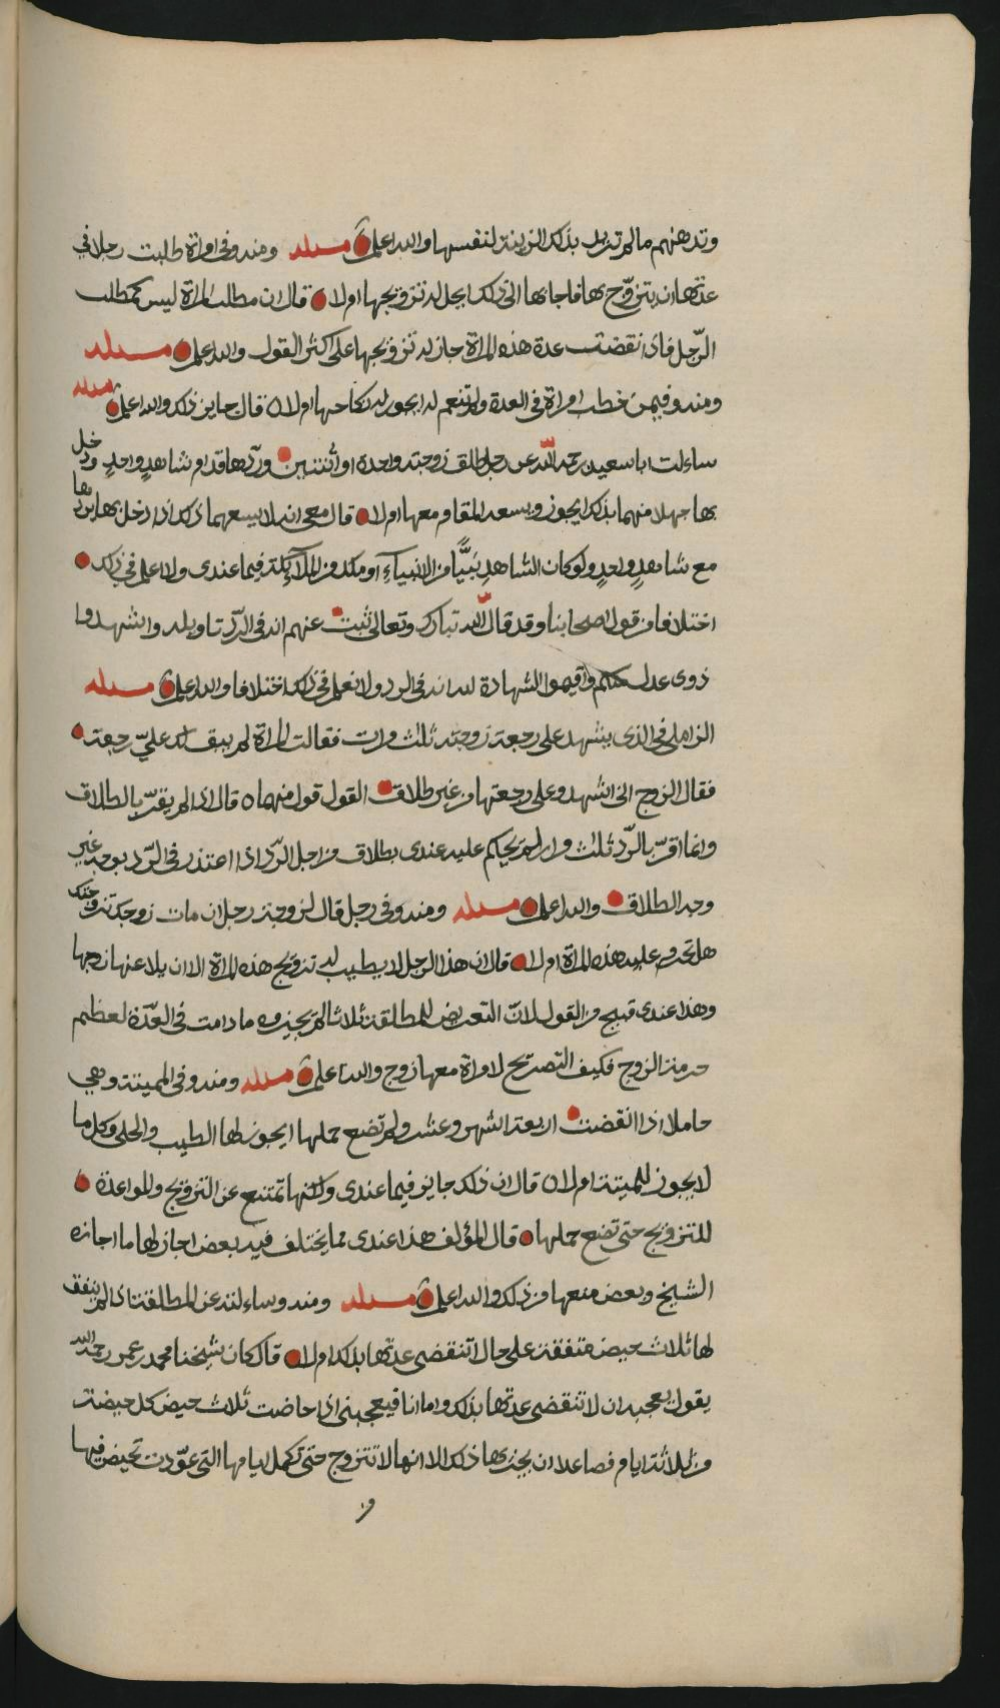 وتدهنهم مالم تريد بذلك الزينة لنفسها والله اعلم مسئله ومنه وفى امراة طلبت رجلا في
عدتها ان يتزوّج بها فاجابها الى ذلك ايحل له تزويجها ام لا قال ان مطلب المراة ليس كمطلب
الرّجل فاذا انقضت عدة هذه المراة جاز له تزويجها على اكثر القول والله اعلم مسئله
ومنه وفيمن خطب امراة فى العدة ولم تنعم له ايجوز له نكاحها ام لا قال جايز ذلك والله اعلم مسئله
ساءلت ابا سعيد رحمه الله عن رجل طلق زوجته واحدة او اثنتين وردها قدام شاهدٍ واحدٍ ودخل
بها جهلا منهما بذلك ايجوز ويسعه المقام معها ام لا قال معى انه لا يسعهما ذلك اذا دخل بها بردها
مع شاهدٍ واحدٍ ولو كان الشاهد نبيًّا من الانبياء او ملك من الملآئكة فيما عندى ولا اعلم في ذلك
اختلافا من قول اصحابنا وقد قال الله تبارك وتعالى ثبت عنهم انه فى الرّد تاويله واشهدوا
ذوى عدل منكم واقيموا الشهادة لله انه فى الرد ولا نعلم فى ذلك اختلافا والله اعلم مسئله
الزاملى فى الذى يشهد على رجعة زوجته ثلث مرات فقالت المراة لم يبق لك عليّ رجعة
فقال الزوج انى اشهد على رجعتها من غير طلاق القول قول من منهما قال اذا لم يقرّ بالطلاق
وانما اقرّ بالرّد ثلث مرار لم يحكم عليه عندى بطلاق من اجل الرّد اذا اعتذر فى الرّد بوجه غير
وجه الطلاق والله اعلم مسئله ومنه وفى رجل قال لزوجة رجل ان مات زوجك تزوجتك
هل تحرم عليه هذه المراة ام لا قال ان هذا الرجل لا يطيب له تزويج هذه المراة الا ان يلاعنها زوجها
وهذا عندى قبيح من القول لانّ التعريض للمطلقة ثلاثا لم يجيزوه ما دامت فى العدّة لعظيم
حرمة الزوج فكيف التصريح لامراة معها زوج والله اعلم مسئله ومنه وفى المميتة وهي
حاملا اذا انقضت اربعة اشهر وعشر ولم تضع حملها ايجوز لها الطيب والحلى وكل ما
لا يجوز للميتة ام لا قال ان ذلك جايز فيما عندى ولكنها تمتنع عن التزويج والمواعدة
للتزويج حتى تضع حملها قال المؤلف هذا عندى مما يختلف فيه بعض اجاز لها ما اجازه
الشيخ وبعض منعها من ذلك والله اعلم مسئله ومنه وساءلته عن المطلقة اذا لم يتفق
لها ثلاث حيض متفقة على حال اتنقضى عدتها بذلك ام لا قال كان شيخنا محمد بن عمر رحمه الله
يقول يعجبه ان لا تنقضى عدتها بذلك واما انا فيعجبنى اذا حاضت ثلاث حيض كل حيضة
من ثلاثة ايام فصاعدا ان يجزيها ذلك الا انها لا تتزوج حتى تكمل ايامها التى عوّدت تحيض فيها
و